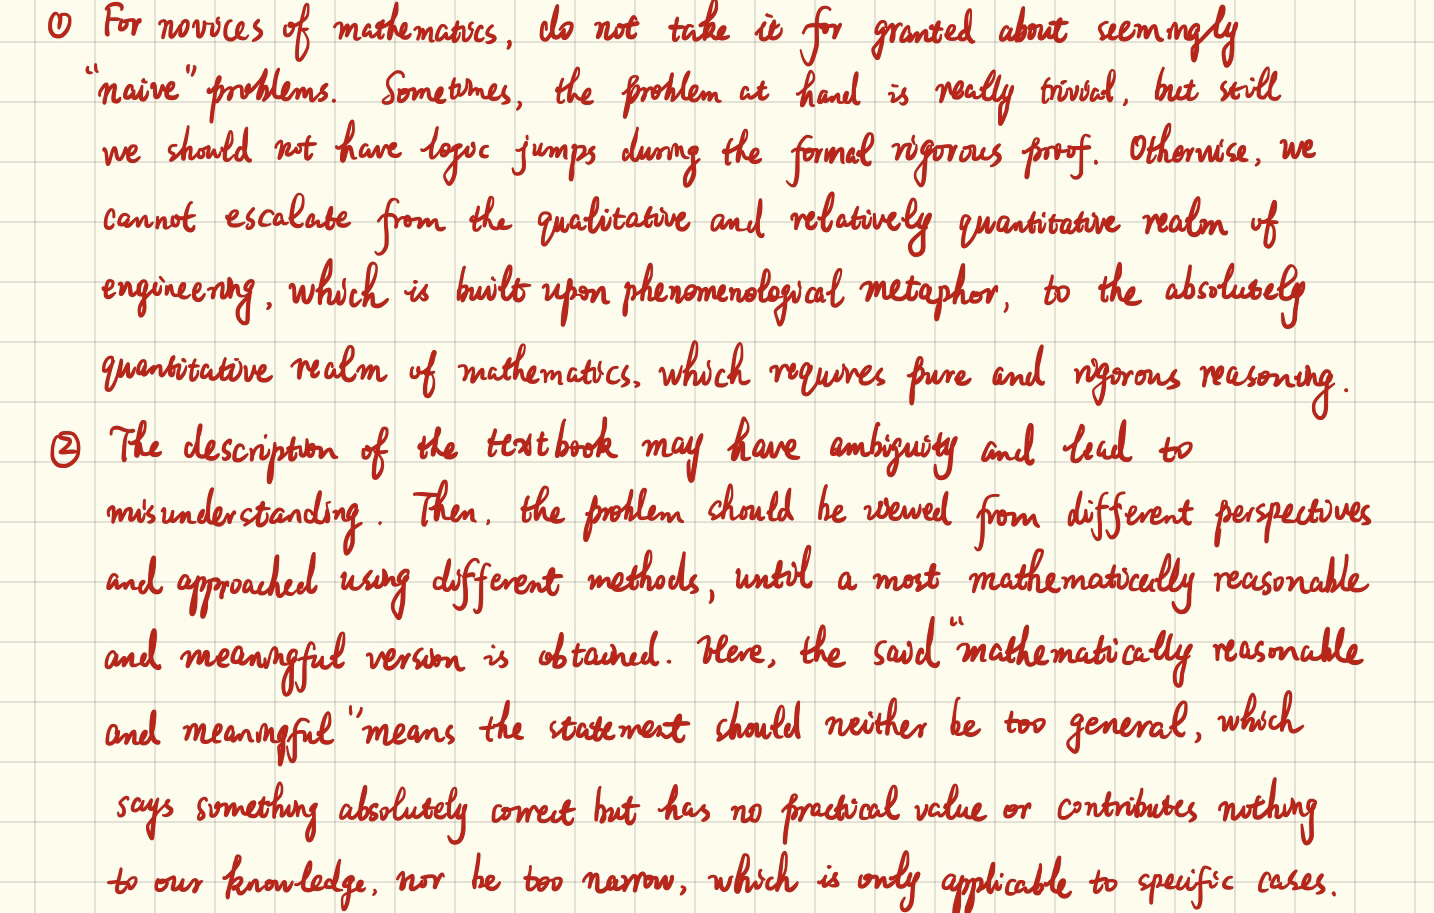 ① For novices of mathematics, do not take it for granted about seemingly
"naive" problems. Sometimes, the problem at hand is really trivial, but still
we should not have logic jumps during the formal rigorous proof. Otherwise, we
cannot escalate from the qualitative and relatively quantitative realm of
engineering, which is built upon phenomenological metaphor, to the absolutely
quantitative realm of mathematics, which requires pure and rigorous reasoning.
② The description of the textbook may have ambiguity and lead to
misunderstanding. Then, the problem should be viewed from different perspectives
and approached using different methods, until a most mathematically reasonable
and meaningful version is obtained. Here, the said "mathematically reasonable
and meaningful" means the statement should neither be too general, which
says something absolutely correct but has no practical value or contributes nothing
to our knowledge, nor be too narrow, which is only applicable to specific cases.